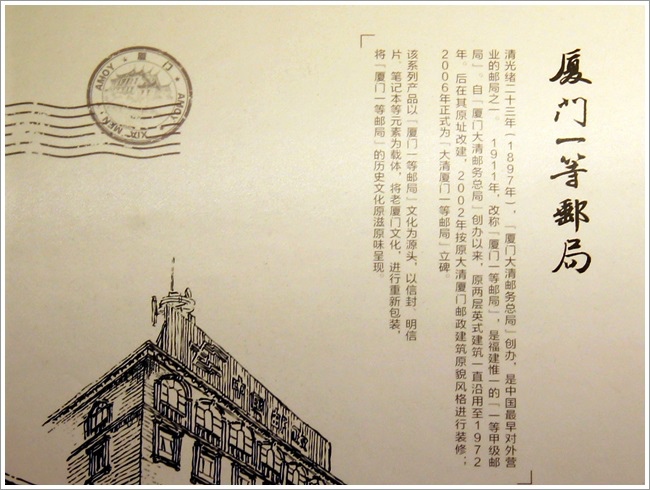 厦门一等郵局
清光绪二十三年(1897年),「厦门大清邮务总局」创办,是中国最早对外营
业的邮局之一。 1911年,改称「厦门一等邮局」,是福建惟一的「一等甲级邮
局」。自「厦门大清邮务总局」创办以来,原两层英式建筑一直沿用至1972
年。后在其原址改建,2002年按原大清厦门邮政建筑原貌风格进行装修;
2006年正式为「大清厦门一等邮局」立碑。
该系列产品以「厦门一等邮局」文化为源头,以信封 明信
片 笔记本等元素为载体,将老厦门文化,进行重新包装,
将「厦门一等邮局」的历史文化原滋原味呈现。
AMOY 厦门 AMOY
XIA MEN
中国邮政